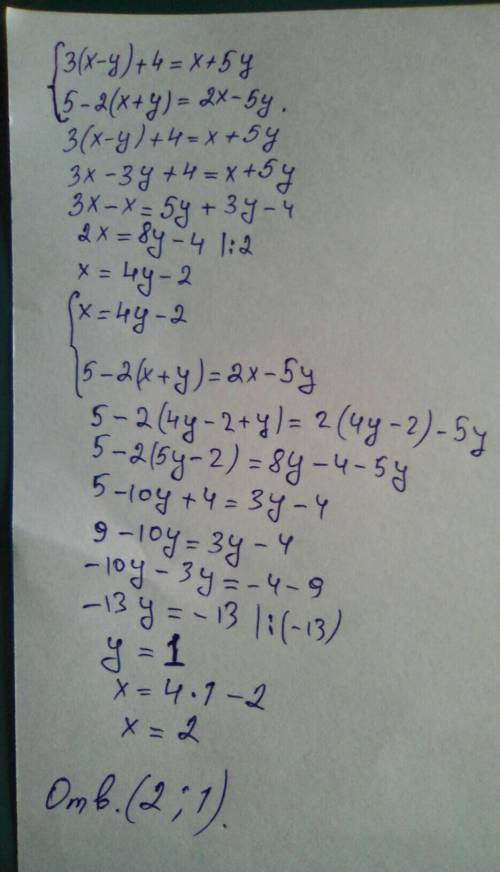 {3(x-y)+4=x+5y
{5-2(x+y)=2x-5y.
3(x-y)+4=x+5y
3x-3y+4=x+5y
3x-x=5y+3y-4
2x=8y-4 |:2
x=4y-2
{x=4y-2
{5-2(x+y)=2x-5y
5-2(4y-2+y)=2(4y-2)-5y
5-2(5y-2)=8y-4-5y
5-10y+4=3y-4
9-10y=3y-4
-10y-3y=-4-9
-13y=-13 |:(-13)
y=1
x=4·1-2
x=2
Отв.(2;1).